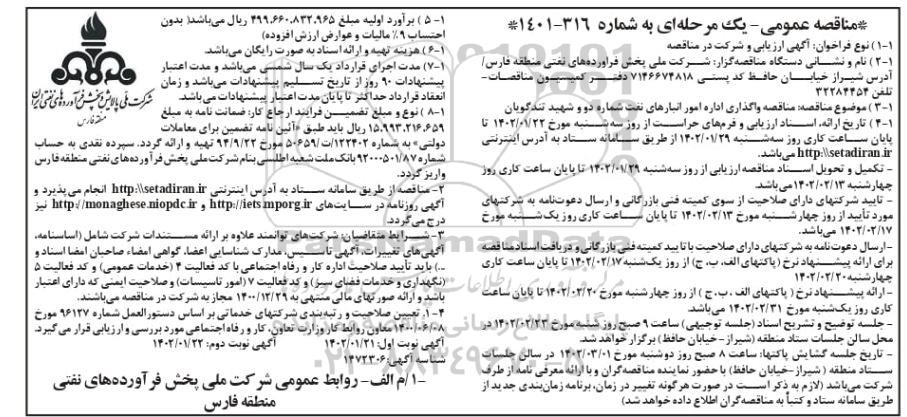 *مناقصه عمومی- یک مرحله‌ای به شماره ۳۱۶-۱۴۰۱*
۱-۱) نوع فراخوان: آگهی ارزیابی و شرکت در مناقصه
۲-۱) نام و نشانی دستگاه مناقصه‌گزار: شرکت ملی پخش فرآورده‌های نفتی منطقه فارس/
آدرس شیراز خیابان حافظ کد پستی ۷۱۴۶۶۷۴۸۱۸ دفتر کمیسیون مناقصات-
تلفن ۳۲۲۸۴۴۵۴
۳-۱) موضوع مناقصه: مناقصه واگذاری اداره امور انبارهای نفت شماره دو و شهید تندگویان
۴-۱) تاریخ ارائه، اسناد ارزیابی و فرم‌های حراست از روز سه‌شنبه مورخ ۱۴۰۲/۰۱/۲۲ تا
پایان ساعت کاری روز سه‌شنبه ۱۴۰۲/۰۱/۲۹ از طریق سامانه ستاد به آدرس اینترنتی
http:\\setadiran.ir می‌باشد.
- تکمیل و تحویل اسناد مناقصه ارزیابی از روز سه‌شنبه ۱۴۰۲/۰۱/۲۹ تا پایان ساعت کاری روز
چهارشنبه ۱۴۰۲/۰۲/۱۳ می‌باشد.
- تایید شرکتهای دارای صلاحیت از سوی کمیته فنی بازرگانی و ارسال دعوت‌نامه به شرکتهای
مورد تأیید از روز چهارشنبه مورخ ۱۴۰۲/۰۲/۱۳ تا پایان ساعت کاری روز یک‌شنبه مورخ
۱۴۰۲/۰۲/۱۷ می‌باشد.
-ارسال دعوت‌نامه به شرکتهای دارای صلاحیت با تایید کمیته فنی بازرگانی و دریافت اسناد مناقصه
برای ارائه پیشنهاد نرخ (پاکتهای الف، ب، ج) از روز یک‌شنبه ۱۴۰۲/۰۲/۱۷ تا پایان ساعت کاری
چهارشنبه ۱۴۰۲/۰۲/۲۰
- ارائه پیشنهاد نرخ ( پاکتهای الف ، ب، ج ) از روز چهارشنبه مورخ ۱۴۰۲/۰۲/۲۰ تا پایان ساعت
کاری روز یک‌شنبه مورخ ۱۴۰۲/۰۲/۳۱ می‌باشد.
- جلسه توضیح و تشریح اسناد (جلسه توجیهی) ساعت ۹ صبح روز شنبه مورخ ۱۴۰۲/۰۲/۲۳ در
محل سالن جلسات ستاد منطقه (شیراز-خیابان حافظ) برگزار خواهد شد.
- تاریخ جلسه گشایش پاکتها: ساعت ۸ صبح روز دوشنبه مورخ ۱۴۰۲/۰۳/۰۱ در سالن جلسات
ستاد منطقه ( شیراز-خیابان حافظ) با حضور نماینده مناقصه‌گران و با ارائه معرفی نامه از طرف
شرکت می‌باشد (لازم به ذکر است در صورت هرگونه تغییر در زمان، برنامه زمان‌بندی جدید از
طریق سامانه ستاد و کتباً به مناقصه‌گران اطلاع داده خواهد شد)
۵-۱) برآورد اولیه مبلغ ۴۹۹.۶۶۰.۸۳۲.۹۶۵ ریال می‌باشد( بدون
احتساب ۹٪ مالیات و عوارض ارزش افزوده)
۶-۱) هزینه تهیه و ارائه اسناد به صورت رایگان می‌باشد.
۷-۱) مدت اجرای قرارداد یک سال شمسی می‌باشد و مدت اعتبار
پیشنهادات ۹۰ روز از تاریخ تسلیم پیشنهادات می‌باشد و زمان
انعقاد قرارداد حداکثر تا پایان مدت اعتبار پیشنهادات می‌باشد.
۸-۱) نوع و مبلغ تضمین فرآیند ارجاع کار: ضمانت نامه به مبلغ
۱۵.۹۹۳.۲۱۶.۶۵۹ ریال باید طبق «آئین نامه تضمین برای معاملات
دولتی» به شماره ۱۲۳۴۰۲/ت/۵۰۶۵۹ مورخ ۹۴/۹/۲۲ تهیه و ارائه گردد. سپرده نقدی به حساب
شماره ۹۲۰۰۰۵۰۱/۸۷ بانک ملت شعبه اطلسی بنام شرکت ملی پخش فرآورده‌های نفتی منطقه فارس
واریز گردد.
۲-مناقصه از طریق سامانه ستاد به آدرس اینترنتی http:\\setadiran.ir انجام می‌پذیرد و
آگهی روزنامه در سایت‌های http://iets.mporg.ir و http://monaghese.niopdc.ir نیز
درج می‌گردد.
۳-شرایط متقاضیان: شرکت‌های توانمند علاوه بر ارائه مستندات شرکت شامل (اساسنامه،
آگهی تغییرات، آگهی تاسیس، مدارک شناسایی اعضا، گواهی امضاء صاحبان امضا اسناد و
...) باید تأیید صلاحیت اداره کار و رفاه اجتماعی با کد فعالیت ۴ (خدمات عمومی) و کد فعالیت ۵
(نگهداری و خدمات فضای سبز) و کد فعالیت ۷ (امور تاسیسات) و صلاحیت ایمنی که دارای اعتبار
باشد و ارائه صورتهای مالی منتهی به ۱۴۰۰/۱۲/۲۹ مجاز به شرکت در مناقصه می‌باشند.
۴-۱. تعیین صلاحیت و رتبه‌بندی شرکتهای خدماتی بر اساس دستورالعمل شماره ۹۶۱۲۷ مورخ
۱۴۰۰/۰۶/۰۸ معاون روابط کار وزارت تعاون، کار و رفاه اجتماعی مورد بررسی و ارزیابی قرار می‌گیرد.
آگهی نوبت اول: ۱۴۰۲/۰۱/۲۱ آگهی نوبت دوم: ۱۴۰۲/۰۱/۲۲
شناسه آگهی: ۱۴۷۲۳۰۶
۱/م الف- روابط عمومی شرکت ملی پخش فرآورده‌های نفتی
منطقه فارس
شرکت ملی پالایش و پخش فرآورده‌های نفتی ایران
منطقه فارس